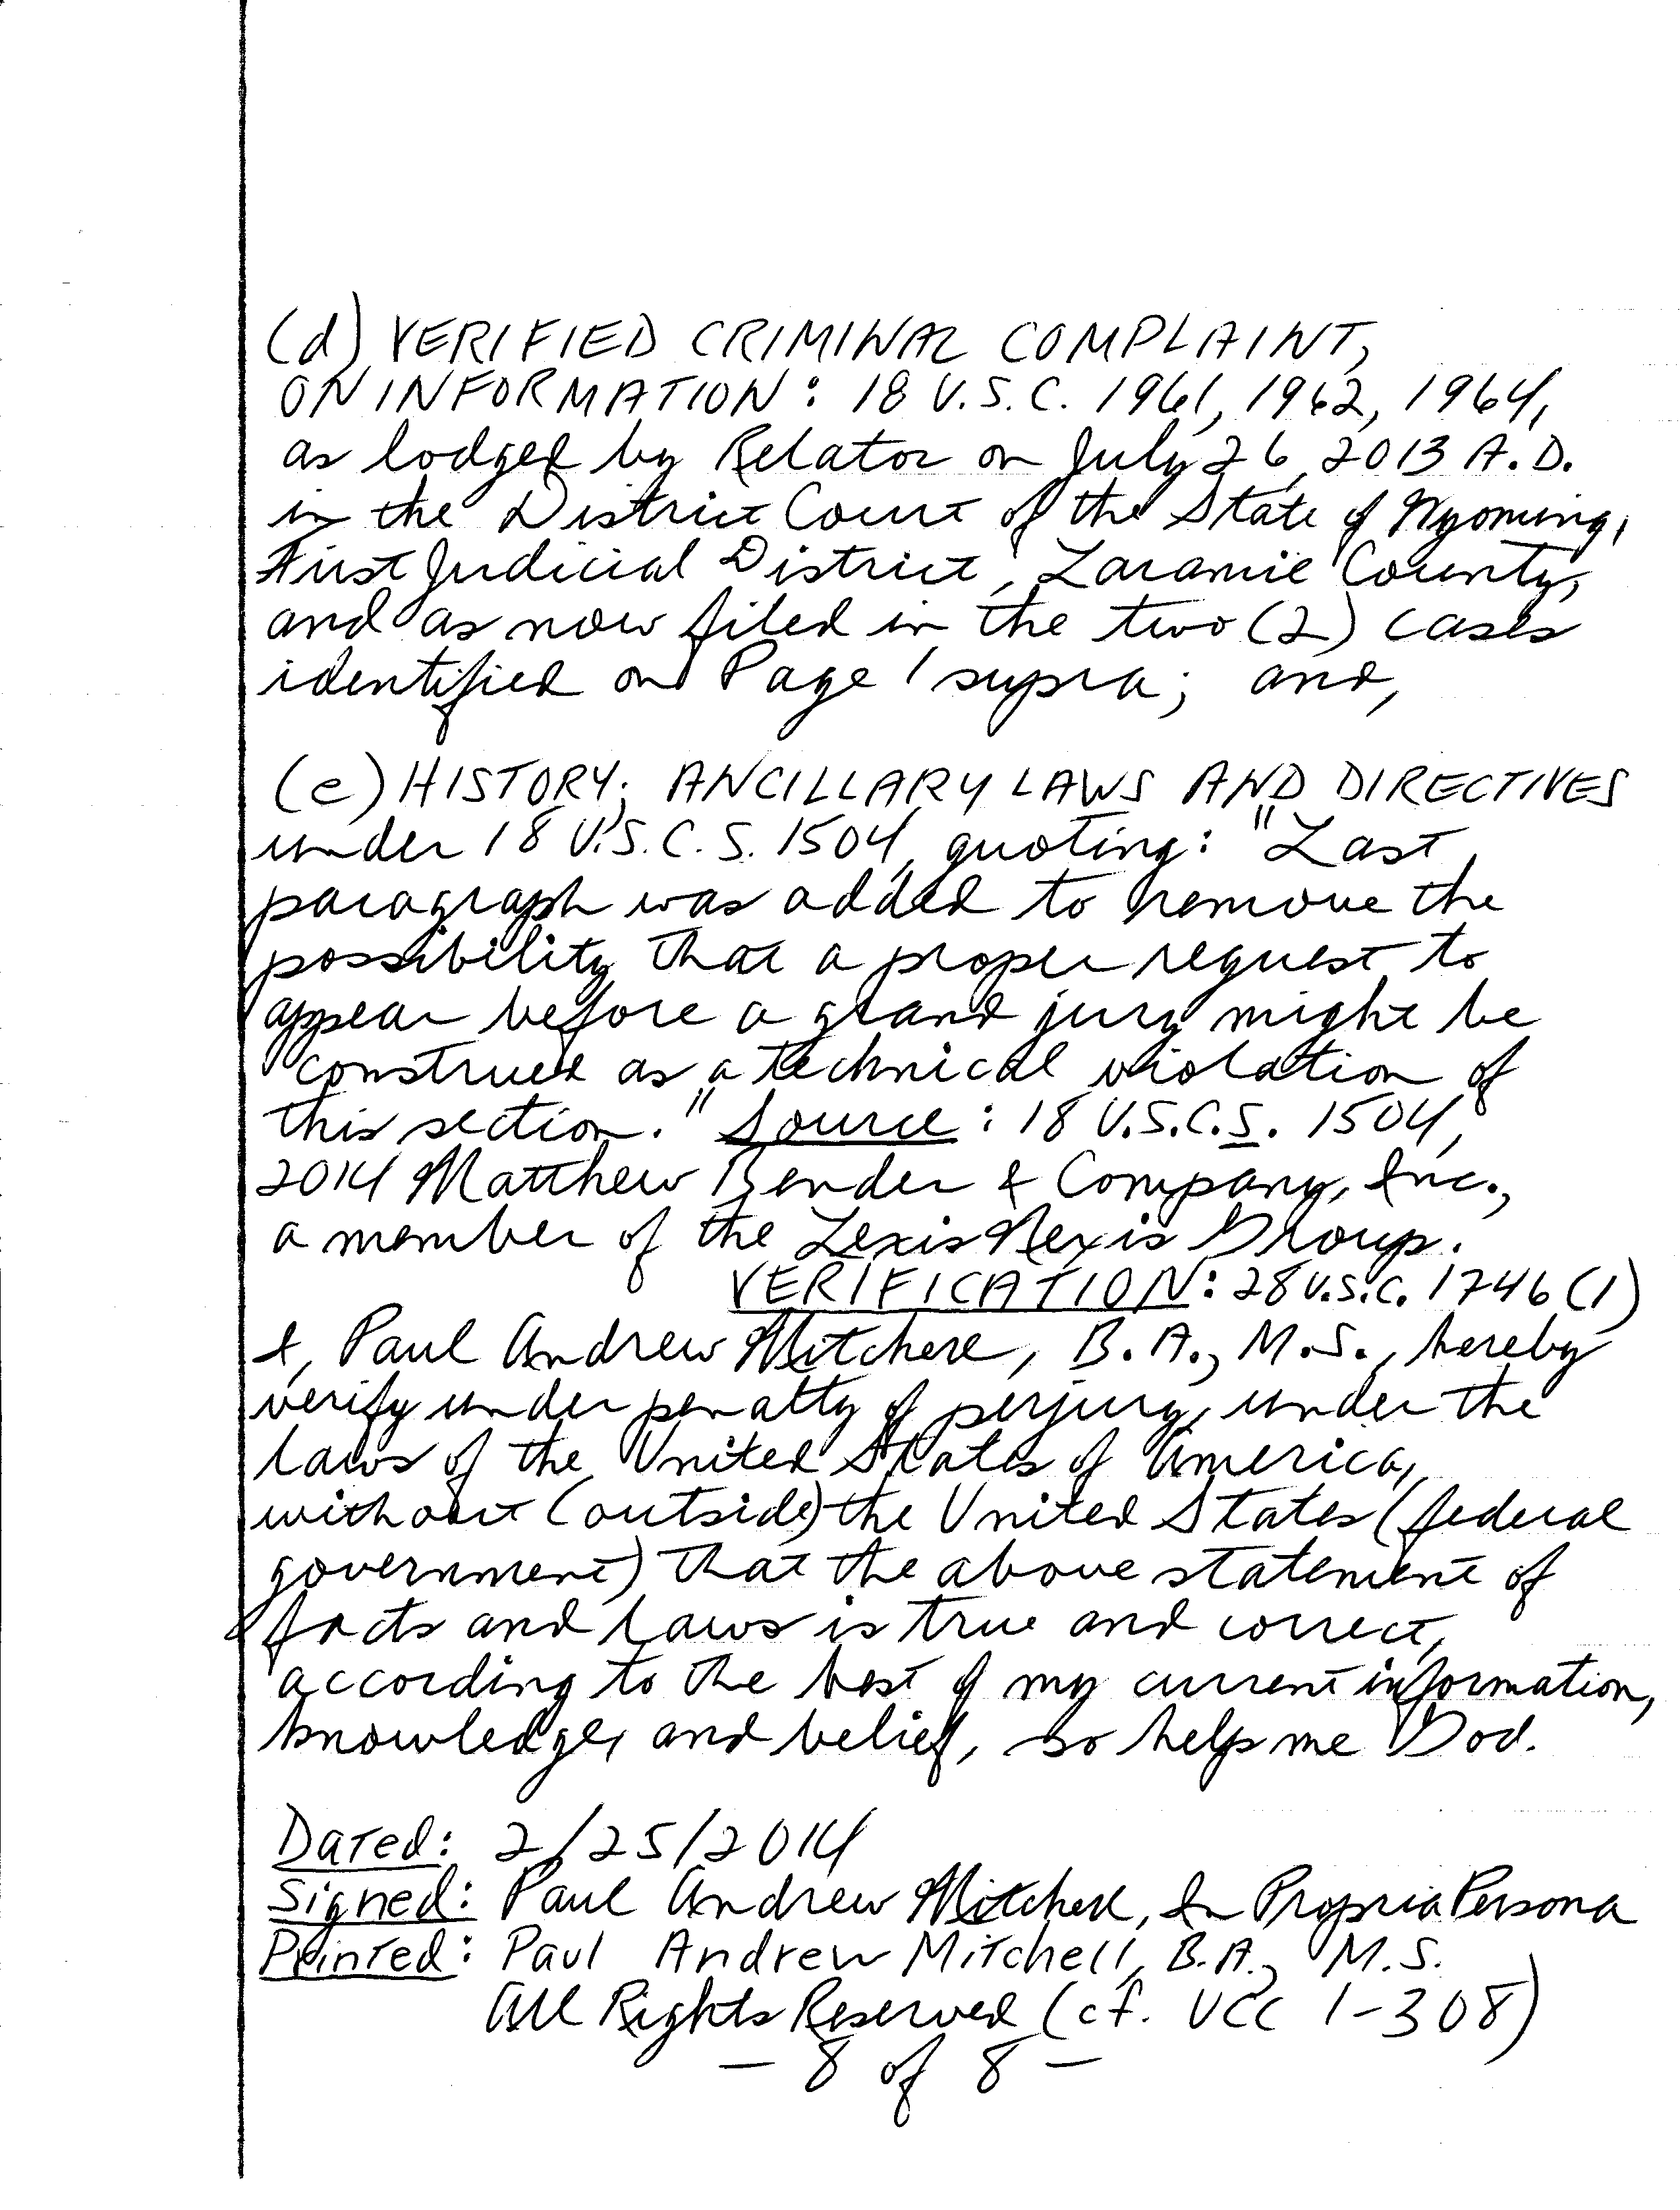 (d) VERIFIED CRIMINAL COMPLAINT,
ON INFORMATION: 18 U.S.C. 1961, 1962, 1964,
as lodged by Relator on July 26, 2013 A.D.
in the District Court of the State of Wyoming,
First Judicial District, Laramie County,
and as now filed in the two (2) cases
identified on Page 1 supra; and,
(e) HISTORY; ANCILLARY LAWS AND DIRECTIVES
under 18 U.S.C.S. 1504, quoting: "Last
paragraph was added to remove the
possibility that a proper request to
appear before a grand jury might be
construed as a technical violation of
this section." Source: 18 U.S.C.S. 1504,
2014 Matthew Bender & Company, Inc.,
a member of the LexisNexis Group.
VERIFICATION: 28 U.S.C. 1746(1)
I, Paul Andrew Mitchell, B.A., M.S., hereby
verify under penalty of perjury, under the
laws of the United States of America,
without (outside) the United States (federal
government) that the above statement of
facts and laws is true and correct,
according to the best of my current information,
knowledge, and belief, so help me God.
Dated: 2/25/2014
Signed: Paul Andrew Mitchell, In Propria Persona
Printed: Paul Andrew Mitchell, B.A., M.S.
All Rights Reserved (cf. UCC 1-308)
— 8 of 8 —